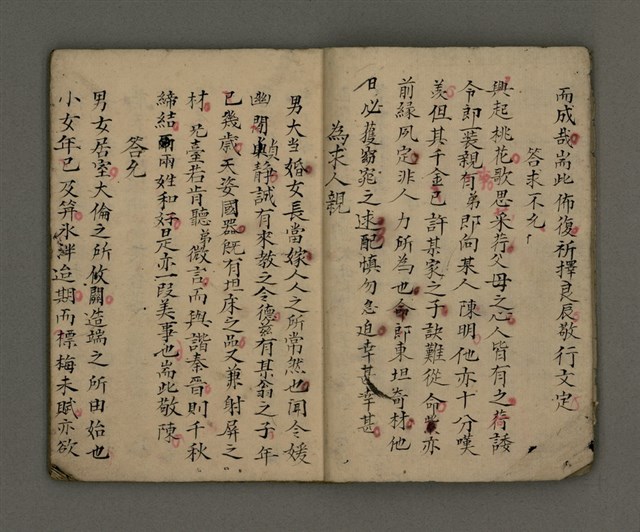 而成哉耑此佈復祈擇良辰敬行文定
答求不允
興起桃花歌思來若父母之心人皆有之荷諉
令郎一裝親有弟即向某人陳明他亦十分嘆
羡但其千金已許某家之子訣難從命亦
前緣夙定非人力所為也命郎東坦奇材他
日必獲窈窕之速配慎勿急迫幸甚幸甚
為某人親
男大當婚女長當嫁人人之所常然也聞令媛
幽閒貞靜誠有來教之令德茲有某翁之子年
已幾歲天姿國器既有坦床之品又兼射屏之
材兄臺若肯聽弟微言而與諧秦晉則千秋
締結兩姓和好是亦一段美事也耑此敬陳
答允
男女居室大倫之所攸關造端之所由始也
小女年已及笄氷泮迨期而標梅未賦亦欲